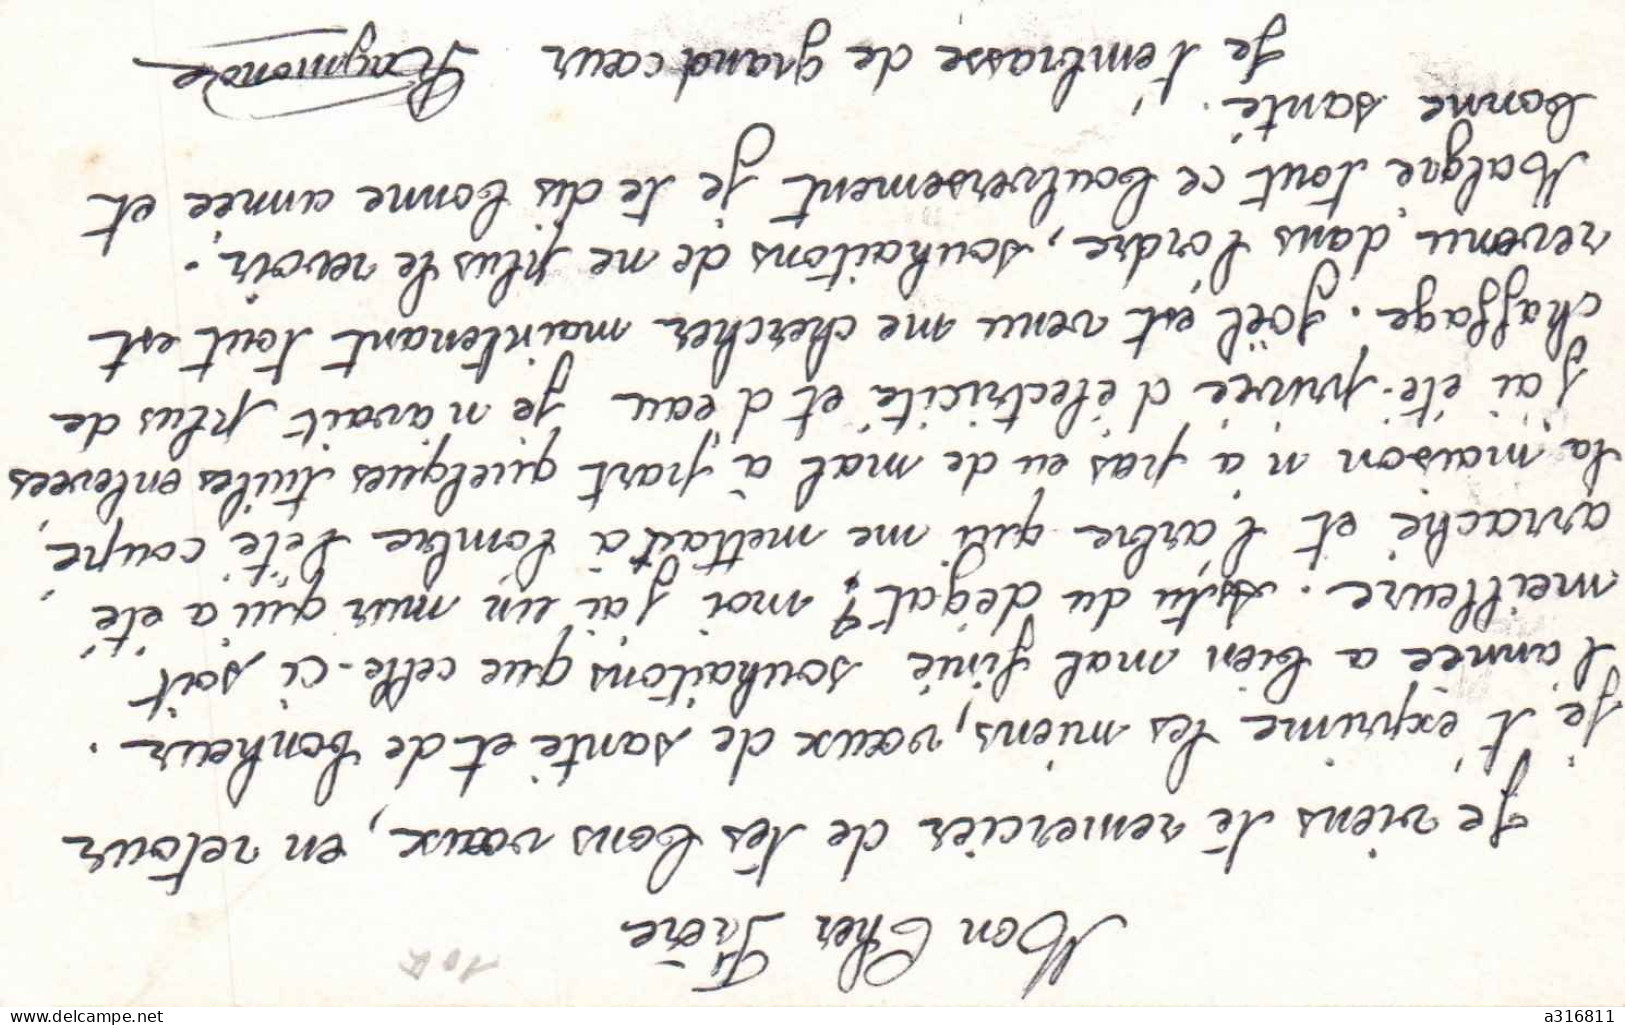 Mon Cher Frère
Je viens te remercier de tes bons vœux, en retour
je t'exprime les miens, vœux de santé et de bonheur.
L'année a bien mal finie souhaitons que celle-ci soit
meilleure. As-tu du dégat? moi j'ai un mur qui a été
arraché et l'arbre qui me mettait à l'ombre l'été, coupé,
la maison n'a pas eu de mal à part quelques tuiles enlevées,
j'ai été privée d'électricité et d'eau je n'avait plus de
chaffage. Joël est venu me chercher maintenant tout est
revenu dans l'ordre, souhaitons de ne plus le revoir.
Malgré tout ce boulversement je te dis bonne année et
bonne santé.
Je t'embrasse de grand cœur Raymonde
www.delcampe.net
a316811